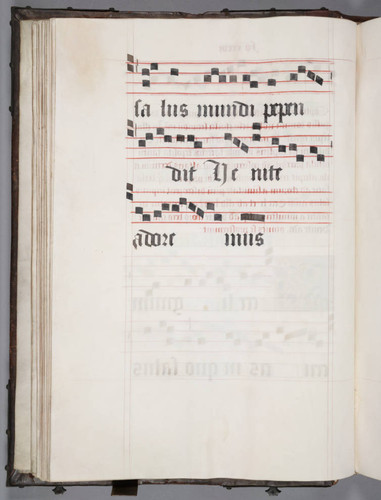 sa lus mundi pepen
dit Ve nite
adore mus